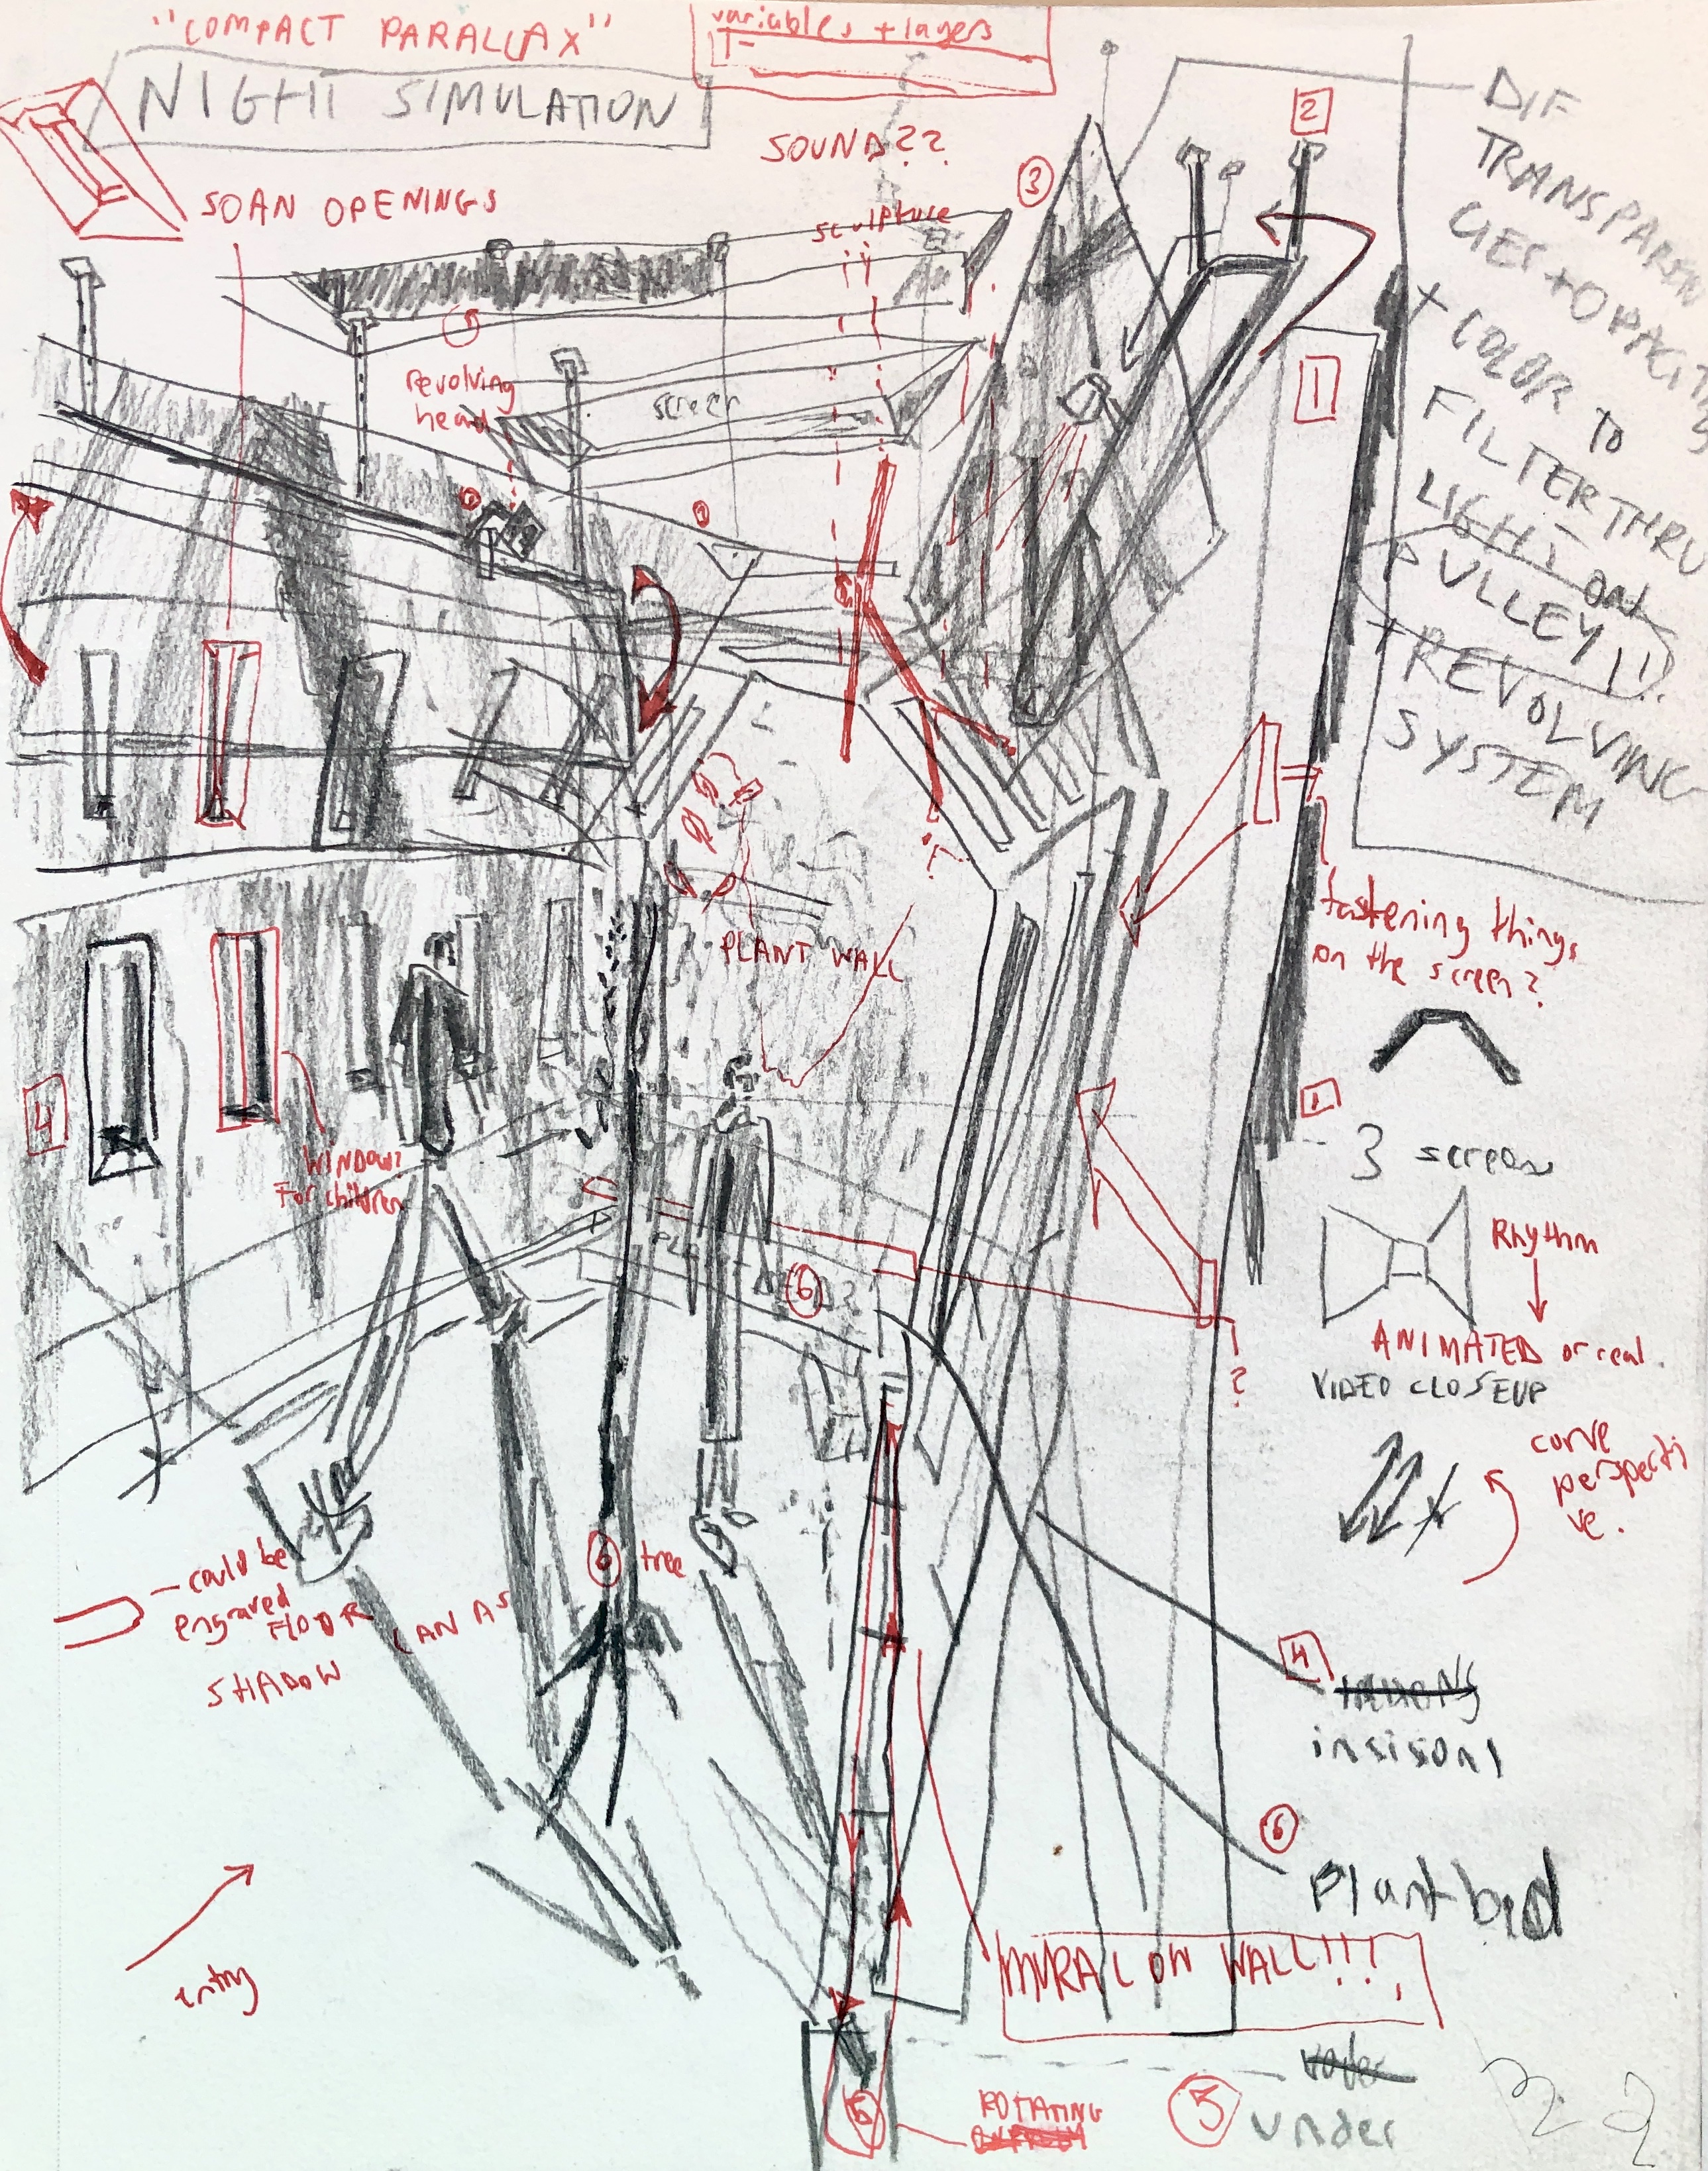 "COMPACT PARALLAX"
variables + layers
NIGHT SIMULATION
SOUND??
2
3
SOAN OPENINGS
sculpture
DIF
TRANSPAREN
CIES + OPACITYS
+ COLOR TO
FILTER THRU
LIGHT
PULLEY!!
+ REVOLVING
SYSTEM
revolving
head
screen
1
fastening things
on the screen?
PLANT WALL
4
WINDOW?
For children
1
3 screens
Rhythm
ANIMATED or real
VIDEO CLOSEUP
6
?
curve
perspecti
ve.
6 tree
— could be
engraved
FLOOR CAN AS
SHADOW
4
insisons
6
Plantbed
entry
MURAL OW WALL!!!
5
ROTATING
5
under